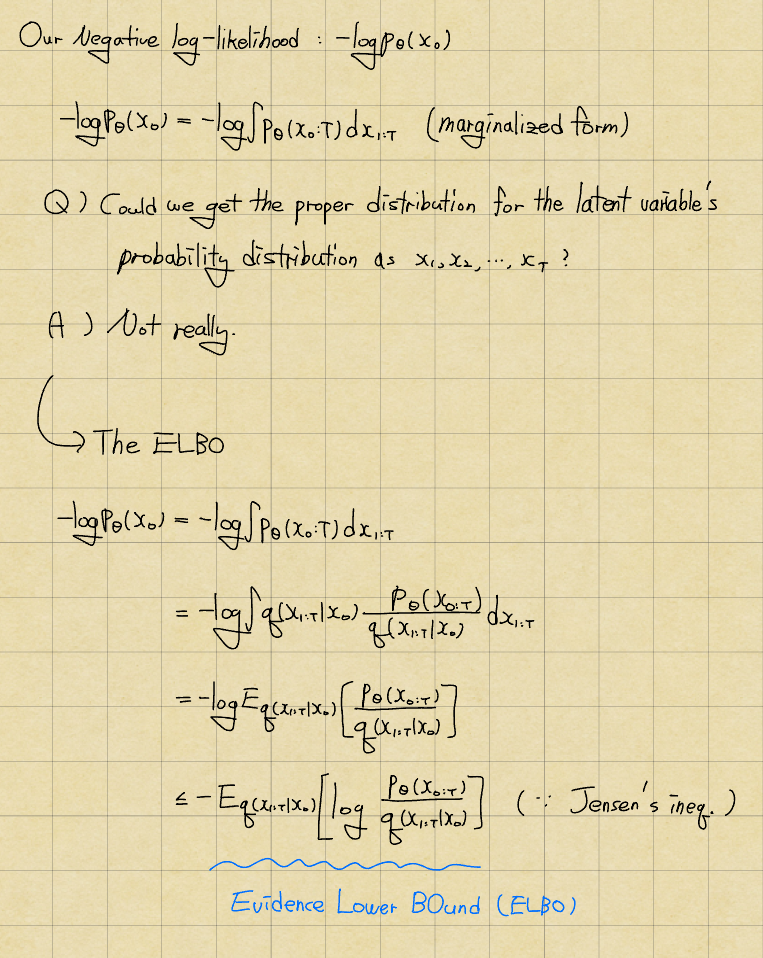 Our Negative log-likelihood : -log pθ(x₀)
-log pθ(x₀) = -log∫pθ(x₀:T)dx₁:T (marginalized form)
Q) Could we get the proper distribution for the latent variable's
probability distribution as x₁, x₂, ..., x_T ?
A) Not really.
→ The ELBO
-log pθ(x₀) = -log∫pθ(x₀:T)dx₁:T
= -log∫q(x₁:T|x₀) pθ(x₀:T)/q(x₁:T|x₀) dx₁:T
= -log E_q(x₁:T|x₀)[pθ(x₀:T)/q(x₁:T|x₀)]
≤ -E_q(x₁:T|x₀)[log pθ(x₀:T)/q(x₁:T|x₀)] (∵ Jensen's ineq.)
Evidence Lower BOund (ELBO)